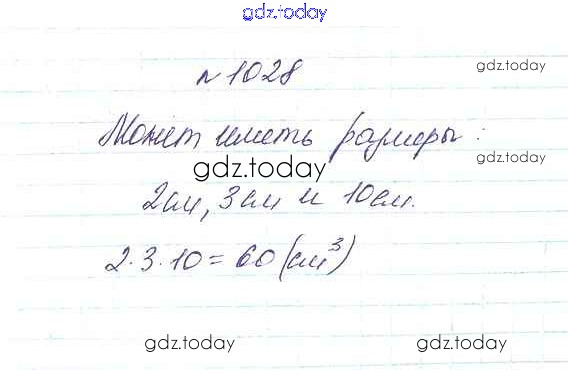 gdz.today
№ 1028
gdz.today
Может иметь размеры:
gdz.today
gdz.today
2см, 3см и 10см.
2·3·10=60(см³)
gdz.today
gdz.today